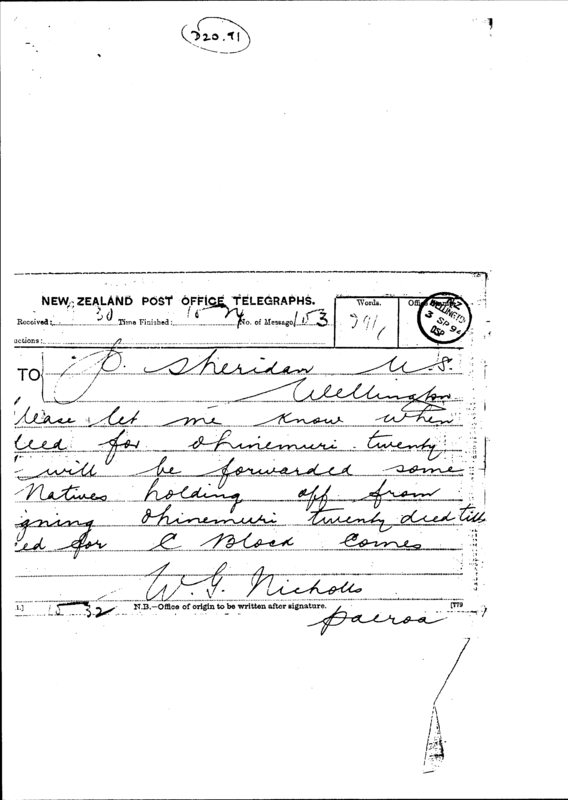 220.91
NEW ZEALAND POST OFFICE TELEGRAPHS.
Words.
Received: 30 Time Finished: 15 No. of Message 153
uctions:
3 SP 94
TO P. Sheridan N.S.
Wellington
lease let me know when
deed for Ohinemuri twenty
will be forwarded some
Natives holding off from
gning Ohinemuri twenty deed till
ed for C Block Comes
W. G. Nicholls
15 32 N.B.—Office of origin to be written after signature.
Paeroa